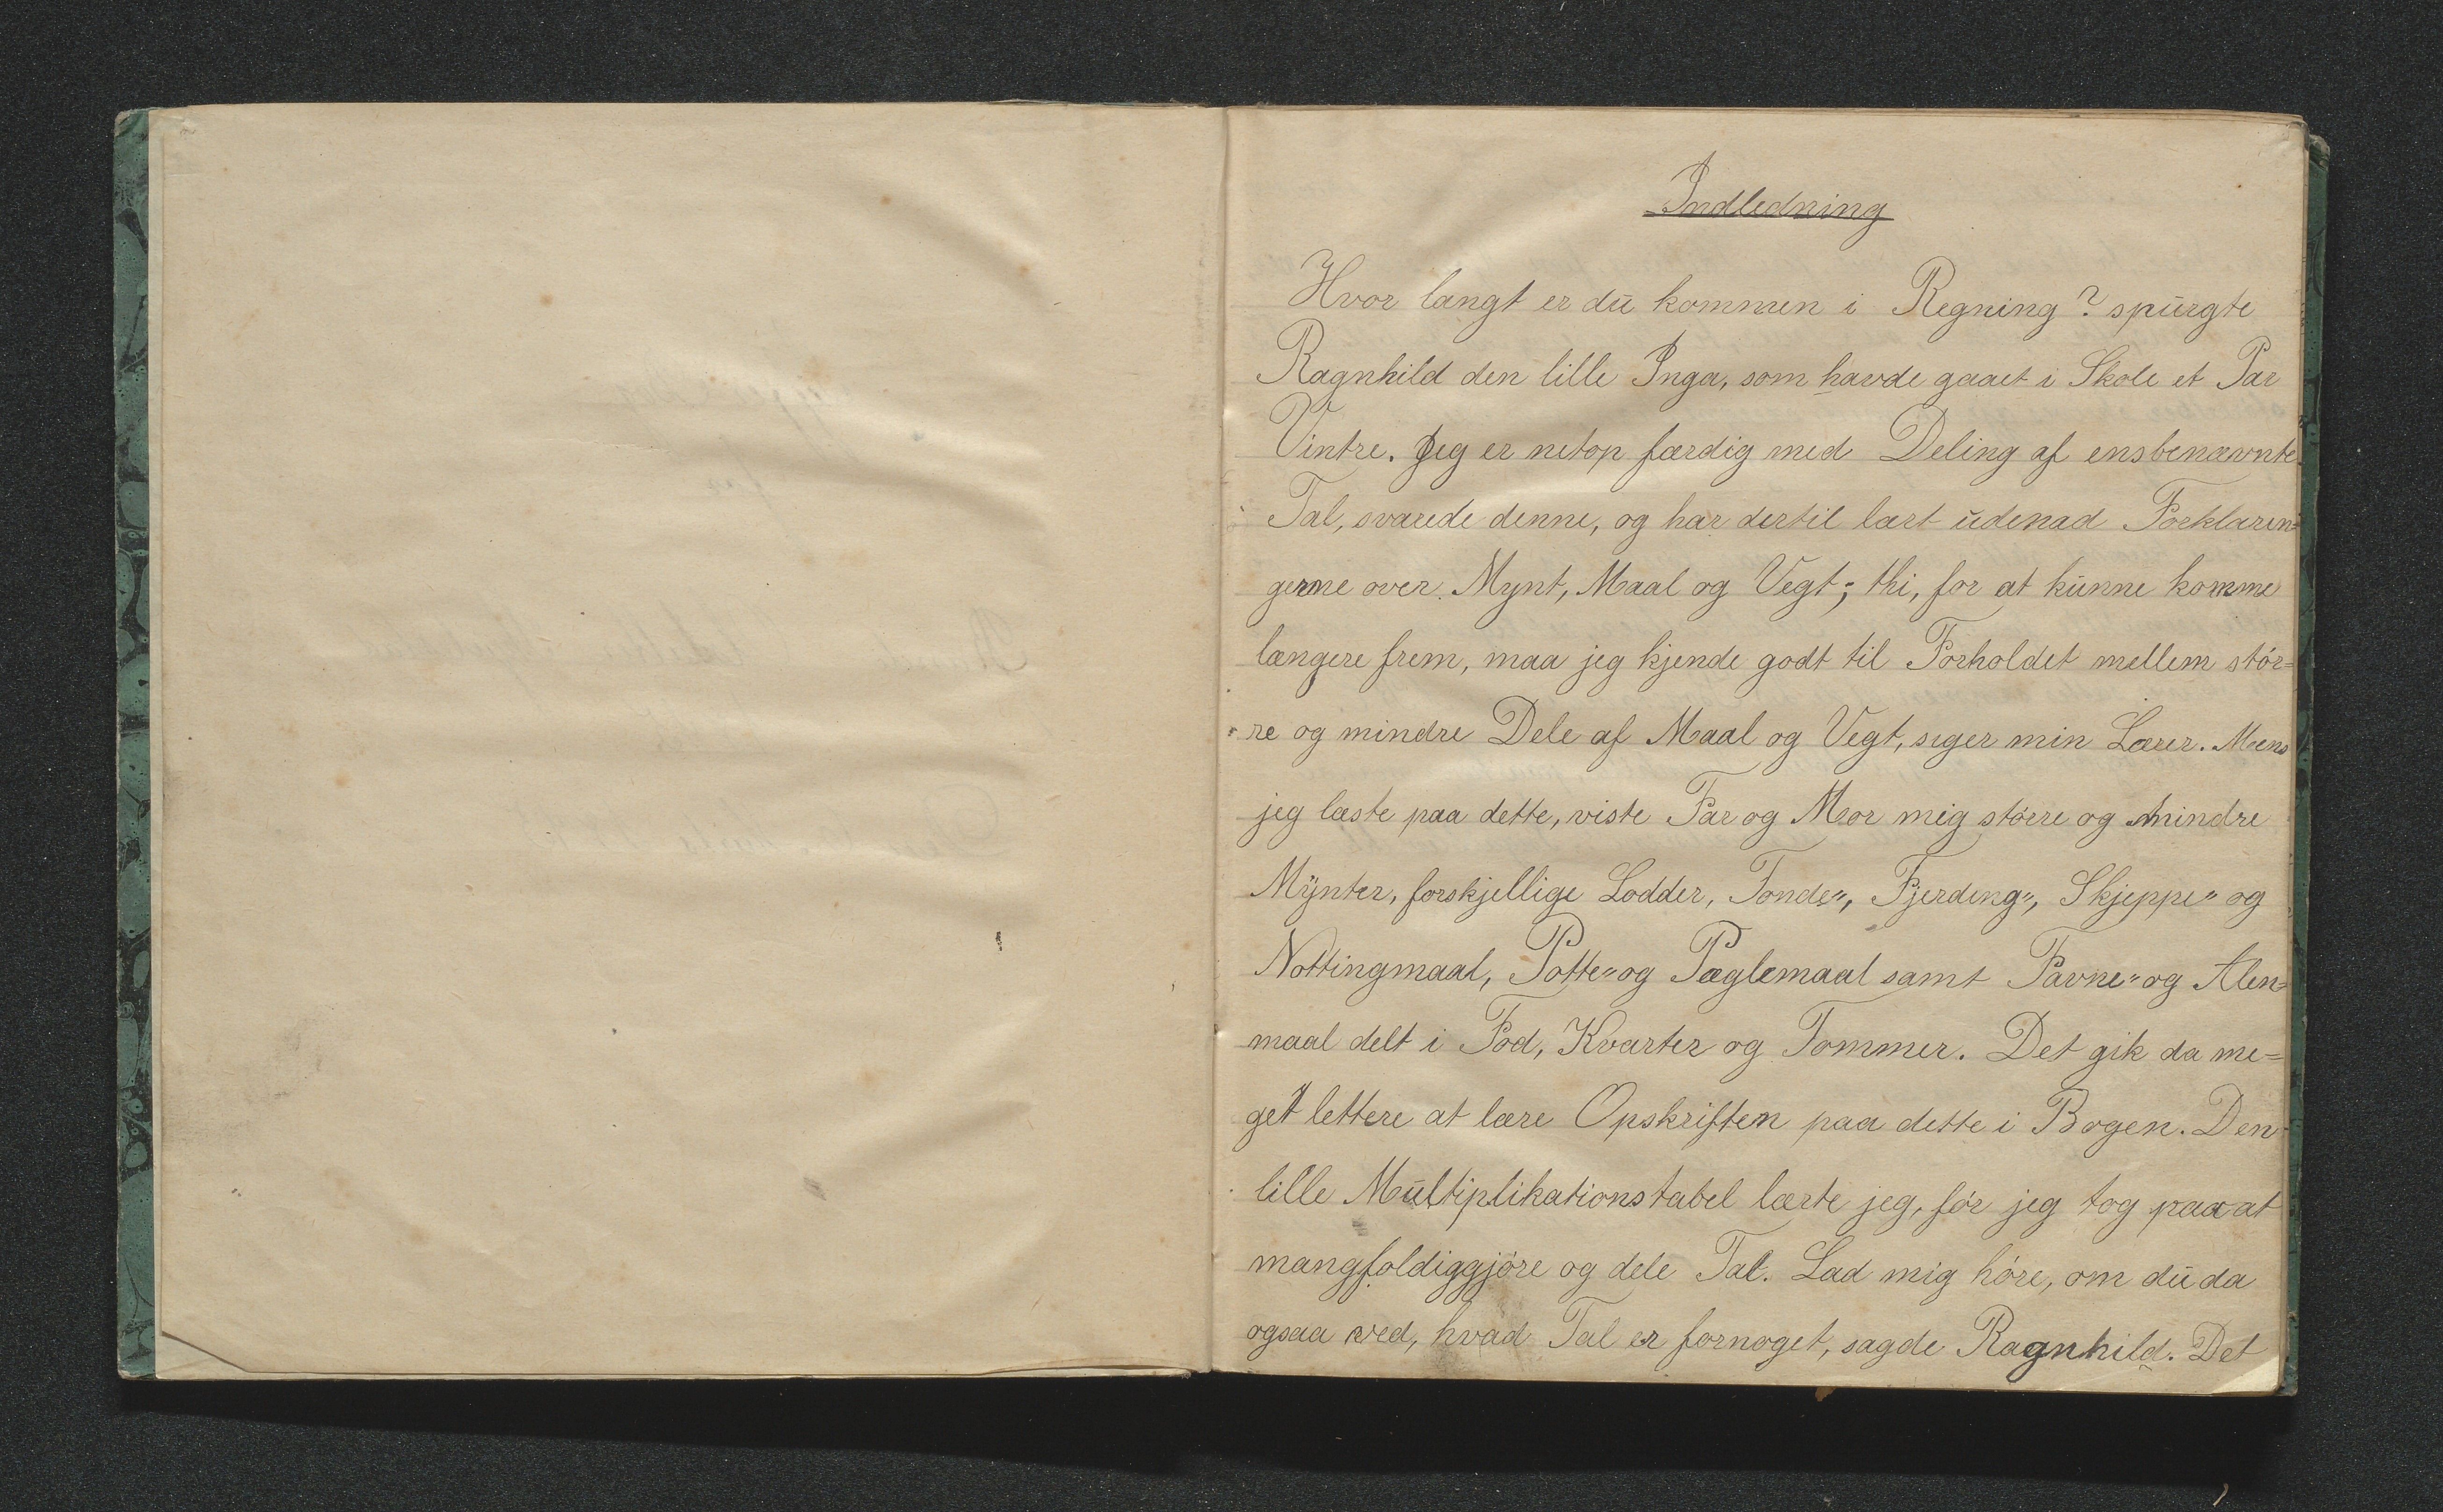 Indledning
Hvor langt er du kommen i Regning? spurgte
Ragnhild den lille Inga, som havde gaaet i Skole et Par
Vintre. Jeg er netop færdig med Deling af ensbenævnte
Tal, svarede denne, og har dertil lært udenad Forklarin=
gerne over Mynt, Maal og Vegt; thi, for at kunne komme
længere frem, maa jeg kjende godt til Forholdet mellem stör=
re og mindre Dele af Maal og Vegt, siger min Lærer. Mens
jeg læste paa dette, viste Far og Mor mig större og mindre
Mynter, forskjellige Lodder, Tonde", Fjerding", Skjeppe" og
Nottingmaal, Potte" og Pæglemaal samt Favne" og Alen=
maal delt i Fod, Kvarter og Tommer. Det gik da me=
get lettere at lære Opskriften paa dette i Bogen. Den
lille Multiplikationstabel lærte jeg, för jeg tog paa at
mangfoldiggjöre og dele Tal. Lad mig höre, om du da
ogsaa ved, hvad Tal er fornoget, sagde Ragnhild. Det